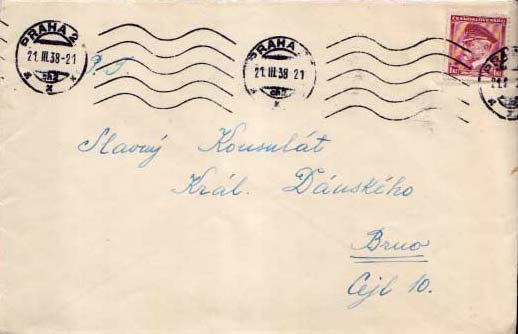 PRAHA 2
21.III.38-21
PRAHA 2
21.III.38-21
ČESKOSLOVENSKO
P.T.
Slavný Konsulát
Král. Dánského
Brno
Cejl 10.